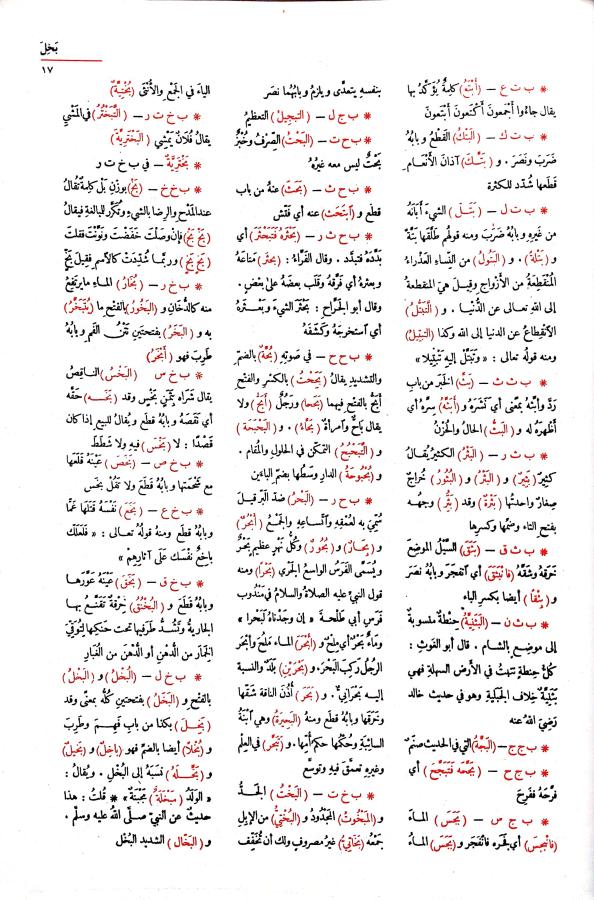 بَخِلَ
١٧
* ب ت ع – (أَبْتَعُ) كلمةٌ يُؤكَّدُ بها
يقال جاءُوا أَجْمعونَ أَكْتعونَ أَبْتعونَ
* ب ت ك – (البَتْكُ) القَطْعُ وبابُهُ
ضَرَبَ ونَصَرَ . و (بَتَّكَ) آذانَ الأَنْعَام
قَطَعها شُدِّد للكثرة
* ب ت ل – (بَتَلَ) الشيءَ أَبَانَهُ
من غيرِهِ وبابُهُ ضَرَبَ ومنه قولُهم طَلَّقها بَتَّةً
و (بَتْلَةً) . و (البَتُولُ) من النِّساءِ العَذْراءُ
المُنْقَطِعةُ من الأَزْواجِ وقيلَ هيَ المنقطعةُ
إلى اللهِ تعالى عن الدُّنْيا . و (التَّبَتُّلُ)
الاَنْقِطاعُ عن الدنيا إلى اللهِ وكذا (التبتيلُ)
ومنه قولُهُ تعالى : «وتَبَتَّلْ إليهِ تَبْتِيلًا»
* ب ث ث – (بَثَّ) الخَبَرَ من باب
رَدَّ وأَبَثَّهُ بمعنًى أي نَشَرَهُ و (أَبَثَّهُ) سِرَّهُ أي
أَظْهَرهُ له و (البَثُّ) الحالُ والحُزْنُ
* ب ث ر – (البَثْرُ) الكثيرُ يُقالُ
كثيرٌ (بَثِيرٌ) و (البَثْرُ) و (البُثُورُ) خُراجٌ
صِغارٌ واحدتُها (بَثْرَةٌ) وقد (بَثُرَ) وجهُهُ
بفتحِ الثاءِ وضمِّها وكسرِها
* ب ث ق – (بَثَقَ) السَّيْلُ الموضِعَ
خَرَقهُ وشَقَّهُ (فانْبَثَقَ) أي اَنفجرَ وبابُهُ نَصَرَ
و (بِثْقًا) أيضا بكسرِ الباءِ
* ب ث ن – (البَثَنِيَّةُ) حِنطةٌ منسوبةٌ
إلى موضِعٍ بالشام . قال أبو الغَوث :
كلُّ حنطةٍ تنبُتُ في الأرضِ السهلةِ فهي
بَثَنِيَّةٌ خِلافَ الجَبَلِيَّةِ وهو في حديثِ خالد
رَضِيَ اللهُ عنه
* ب ج ج – (البَجَّةُ) التي في الحديثِ صنَمٌ
* ب ج ح – (بَجَّحَهُ فَتَبَجَّحَ) أي
فَرَّحَهُ ففَرِحَ
* ب ج س – (بَجَسَ) الماءَ
(فانْبَجَسَ) أي بَجَّرَهُ فانْفَجَرَ و (بَجَسَ) الماءُ
بنفسِهِ يتعدَّى ويلزمُ وبابُهُما نَصَرَ
* ب ج ل – (التبجيلُ) التعظيمُ
* ب ح ت – (البَحْتُ) الصِّرْفُ وخُبْزٌ
بَحْتٌ ليس معه غيرُهُ
* ب ح ث – (بَحَثَ) عنهُ من باب
قطَع و (اَبْتَحَثَ) عنه أي فَتَّش
* ب ح ث ر – (بَحْثَرَهُ فَتَبَحْثَرَ) أي
بَدَّدَهُ فتبدَّد . وقال الفَرَّاءُ : (بحثرَ) مَتاعَهُ
وبعثرهُ أي فَرَّقَهُ وقَلَب بعضَهُ على بعضٍ .
وقال أبو الجرَّاح : بَحْثَرَ الشيءَ وبَعْثَرَهُ
أي اَستخرجَهُ وكَشَفَهُ
* ب ح ح – في صَوْتِهِ (بُحَّةٌ) بالضمِّ
والتشديدِ يقالُ (بَحِحْتُ) بالكسرِ والفتحِ
أَبَحُّ بالفتحِ فيهما (بَحَحا) ورَجُلٌ (أَبَحُّ) ولا
يقالُ باحٌّ واَمرأةٌ (بَحَّاءُ) . و (البَحْبَحَةُ)
و (التَّبَحْبُحُ) التمكُّن في الحلولِ والمُقام .
و (بُحْبُوحَةُ) الدارِ وَسَطُها بضمِّ الباءَين
* ب ح ر – (البَحْرُ) ضدُّ البَرِّ قيلَ
سُمِّيَ بهِ لعُمْقِهِ واَتِّساعِهِ والجَمْعُ (أَبْحُرٌ)
و (بِحَارٌ) و (بُحُورٌ) وكلُّ نَهْرٍ عظيمٍ بَحْرٌ
ويُسمَّى الفَرَسُ الواسعُ الجَرْيِ (بَحْرًا) ومنه
قولُ النبيِّ عليهِ الصلاةُ والسلامُ في مَنْدُوبٍ
فَرَسِ أبي طَلْحة « إن وجَدْناهُ لَبَحْرا »
وماءٌ بَحْرٌ أي مِلْحٌ و (أَبْحَرَ) الماءُ مَلُحَ وأَبْحَرَ
الرَّجُلُ ركِبَ البَحْرَ . و (بَحْرَيْنِ) بلَدٌ والنِّسبة
إليه بَحْرانيٌّ . و (بَحَرَ) أُذُنَ الناقةِ شَقَّها
وخَرَقَها وبابُهُ قَطَع ومنهُ (البَحِيرَةُ) وهي اَبْنَةُ
السائبةِ وحُكْمُها حكمُ أُمِّها . و (تَبَحَّرَ) في العِلْمِ
وغيرِهِ تعمَّقَ فيهِ وتوسَّعَ
* ب خ ت – (البَخْتُ) الجَدُّ
و (المَبْخُوتُ) المَجْدُودُ و (البُخْتِيُّ) من الإِبِلِ
جمعُهُ (بَخَاتِيُّ) غيرُ مصروفٍ ولك أن تُخَفِّفَ
الياءَ في الجَمْعِ والأُنْثَى (بُخْتِيَّةٌ)
* ب خ ت ر – (التَّبَخْتُرُ) في المَشْيِ
يقالُ فُلانٌ يَمْشِي (البَخْتَرِيَّةَ)
* بَخْتَرِيَّةٌ – في ب خ ت ر
* ب خ خ – (بَخْ) بوزنِ بَلْ كلِمةٌ تُقالُ
عندَ المَدْحِ والرِّضا بالشيءِ وتُكرَّرُ للبالغةِ فيقالُ
(بَخْ بَخْ) فإن وصَلْتَ خفَضْتَ ونَوَّنْتَ فقلتَ
(بَخٍ بَخٍ) وربَّما شُدِّدَتْ كالاَسمِ فقيلَ بَخٍّ
* ب خ ر – (بُخَارُ) الماءِ ما يَرتفِعُ
منه كالدُّخَانِ و (البَخُورُ) بالفتحِ ما (يُتَبَخَّرُ)
به و (البَخَرُ) بفتحتينِ نَتْنُ الفَمِ وبابُهُ
طَرِبَ فهو (أَبْخَرُ)
* ب خ س – (البَخْسُ) الناقِصُ
يقال شَراهُ بثَمَنٍ بَخْسٍ وقد (بَخَسَهُ) حَقَّهُ
أي نَقَصَهُ وبابُهُ قطَع ويُقالُ للبيعِ إذا كان
قَصْدًا : لا (بَخْسَ) فيهِ ولا شَطَطَ
* ب خ ص – (بَخَصَ) عَيْنَهُ قَلَعَها
مع شَحْمَتِها وبابُهُ قَطَعَ ولا تَقُلْ بَخَسَ
* ب خ ع – (بَخَعَ) نَفْسَهُ قَتَلَها غَمًّا
وبابُهُ قَطَع ومنهُ قولُهُ تعالى : « فَلَعَلَّكَ
باخِعٌ نَفْسَكَ على آثارِهِمْ »
* ب خ ق – (بَخَقَ) عَيْنَهُ عَوَّرَها
وبابُهُ قَطَعَ و (البُخْنُقُ) خِرْقَةٌ تَقَنَّعُ بها
الجارِيةُ وتَشُدُّ طرفَيها تحتَ حَنَكِها لِتُوَقِّيَ
الخِمارَ من الدُّهْنِ أو الدُّهْنَ من الغُبَارِ
* ب خ ل – (البُخْلُ) و (البَخْلُ)
بالفتحِ و (البَخَلُ) بفتحتينِ كلُّهُ بمعنًى وقد
(بَخِلَ) بكذا من بابِ فَهِمَ وطَرِبَ
و (بُخْلًا) أيضا بالضمِّ فهو (باخِلٌ) و (بَخِيلٌ)
و (بَخَّلَهُ) نَسَبَهُ إلى البُخْلِ . ويُقالُ :
« الوَلَدُ (مَبْخَلَةٌ) مَجْبَنَةٌ » * قُلتُ : هذا
حديثٌ عن النبيِّ صلَّى اللهُ عليهِ وسلَّم .
و (البَخَّالُ) الشديدُ البُخْلِ